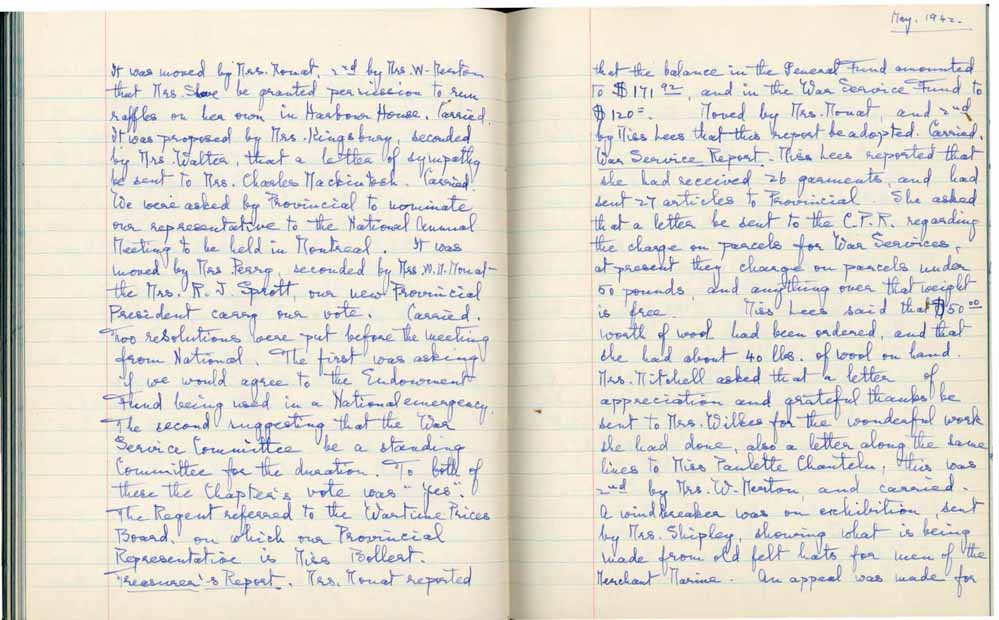 It was moved by Mrs. Mouat, 2nd by Mrs. W. Merton
that Mrs. Stove be granted permission to run
raffles on her own in Harbour House. Carried.
It was proposed by Mrs. Kingsbury, seconded
by Mrs Walter, that a letter of sympathy
be sent to Mrs. Charles Mackintosh. Carried.
We were asked by Provincial to nominate
our representative to the National Annual
Meeting to be held in Montreal. It was
moved by Mrs Perry, seconded by Mrs. W. M. Mouat -
the Mrs. R. J. Sprott, our new Provincial
President carry our vote. Carried.
Two resolutions were put before the meeting
from National. The first was asking
if we would agree to the Endowment
Fund being used in a National emergency.
The second suggesting that the War
Service Committee be a standing
Committee for the duration. To both of
these the Chapter's vote was "Yes".
The Regent referred to the Wartime Prices
Board, on which our Provincial
Representative is Miss Bollert.
Treasurer's Report. Mrs. Mouat reported
May, 1942.
that the balance in the General Fund amounted
to $171 92, and in the War Service Fund to
$120 =. Moved by Mrs. Mouat, and 2nd
by Miss Lees that this report be adopted. Carried.
War Service Report. Miss Lees reported that
she had received 26 garments, and had
sent 27 articles to Provincial. She asked
that a letter be sent to the C.P.R. regarding
the charge on parcels for War Services,
at present they charge on parcels under
50 pounds, and anything over that weight
is free. Miss Lees said that $50 00
worth of wool had been ordered, and that
she had about 40 lbs. of wool on hand.
Mrs. Mitchell asked that a letter of
appreciation and grateful thanks be
sent to Mrs. Wilkes for the wonderful work
she had done, also a letter along the same
lines to Miss Paulette Chantelu, this was
2nd by Mrs. W. Merton, and carried.
A windbreaker was on exhibition, sent
by Mrs. Shipley, showing what is being
made from old felt hats for men of the
Merchant Marine. An appeal was made for